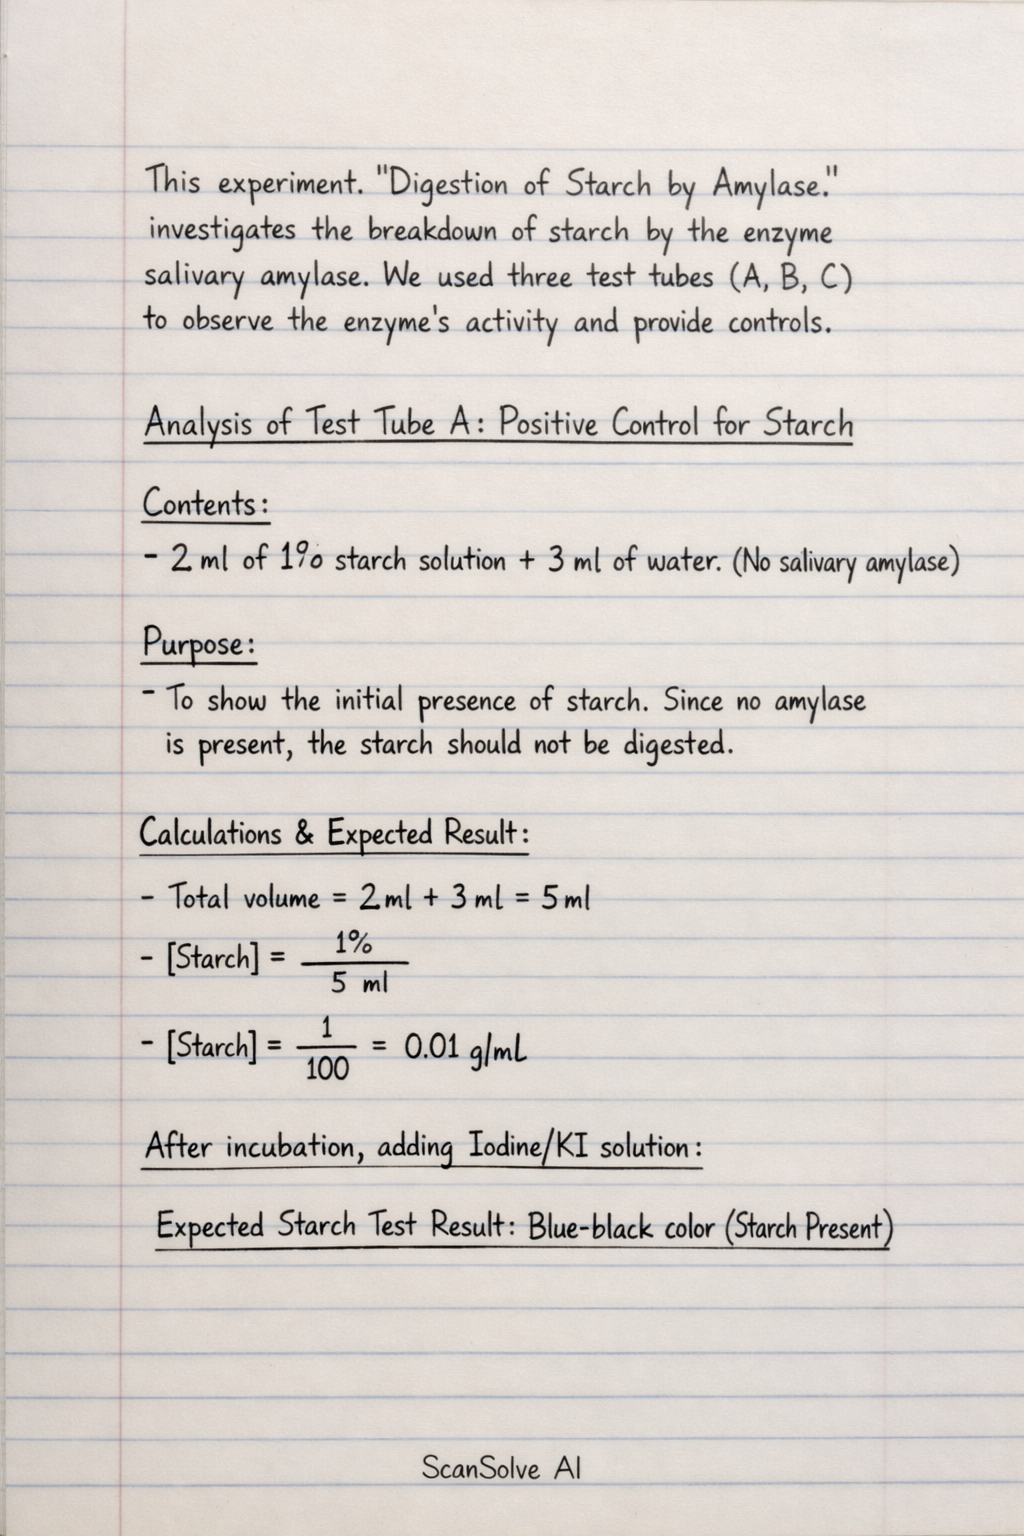 This experiment. "Digestion of Starch by Amylase."
investigates the breakdown of starch by the enzyme
salivary amylase. We used three test tubes (A, B, C)
to observe the enzyme's activity and provide controls.
Analysis of Test Tube A: Positive Control for Starch
Contents:
- 2 ml of 1% starch solution + 3 ml of water. (No salivary amylase)
Purpose:
- To show the initial presence of starch. Since no amylase
is present, the starch should not be digested.
Calculations & Expected Result:
- Total volume = 2 ml + 3 ml = 5 ml
- [Starch] = 1% / 5 ml
- [Starch] = 1 / 100 = 0.01 g/mL
After incubation, adding Iodine/KI solution:
Expected Starch Test Result: Blue-black color (Starch Present)
ScanSolve AI